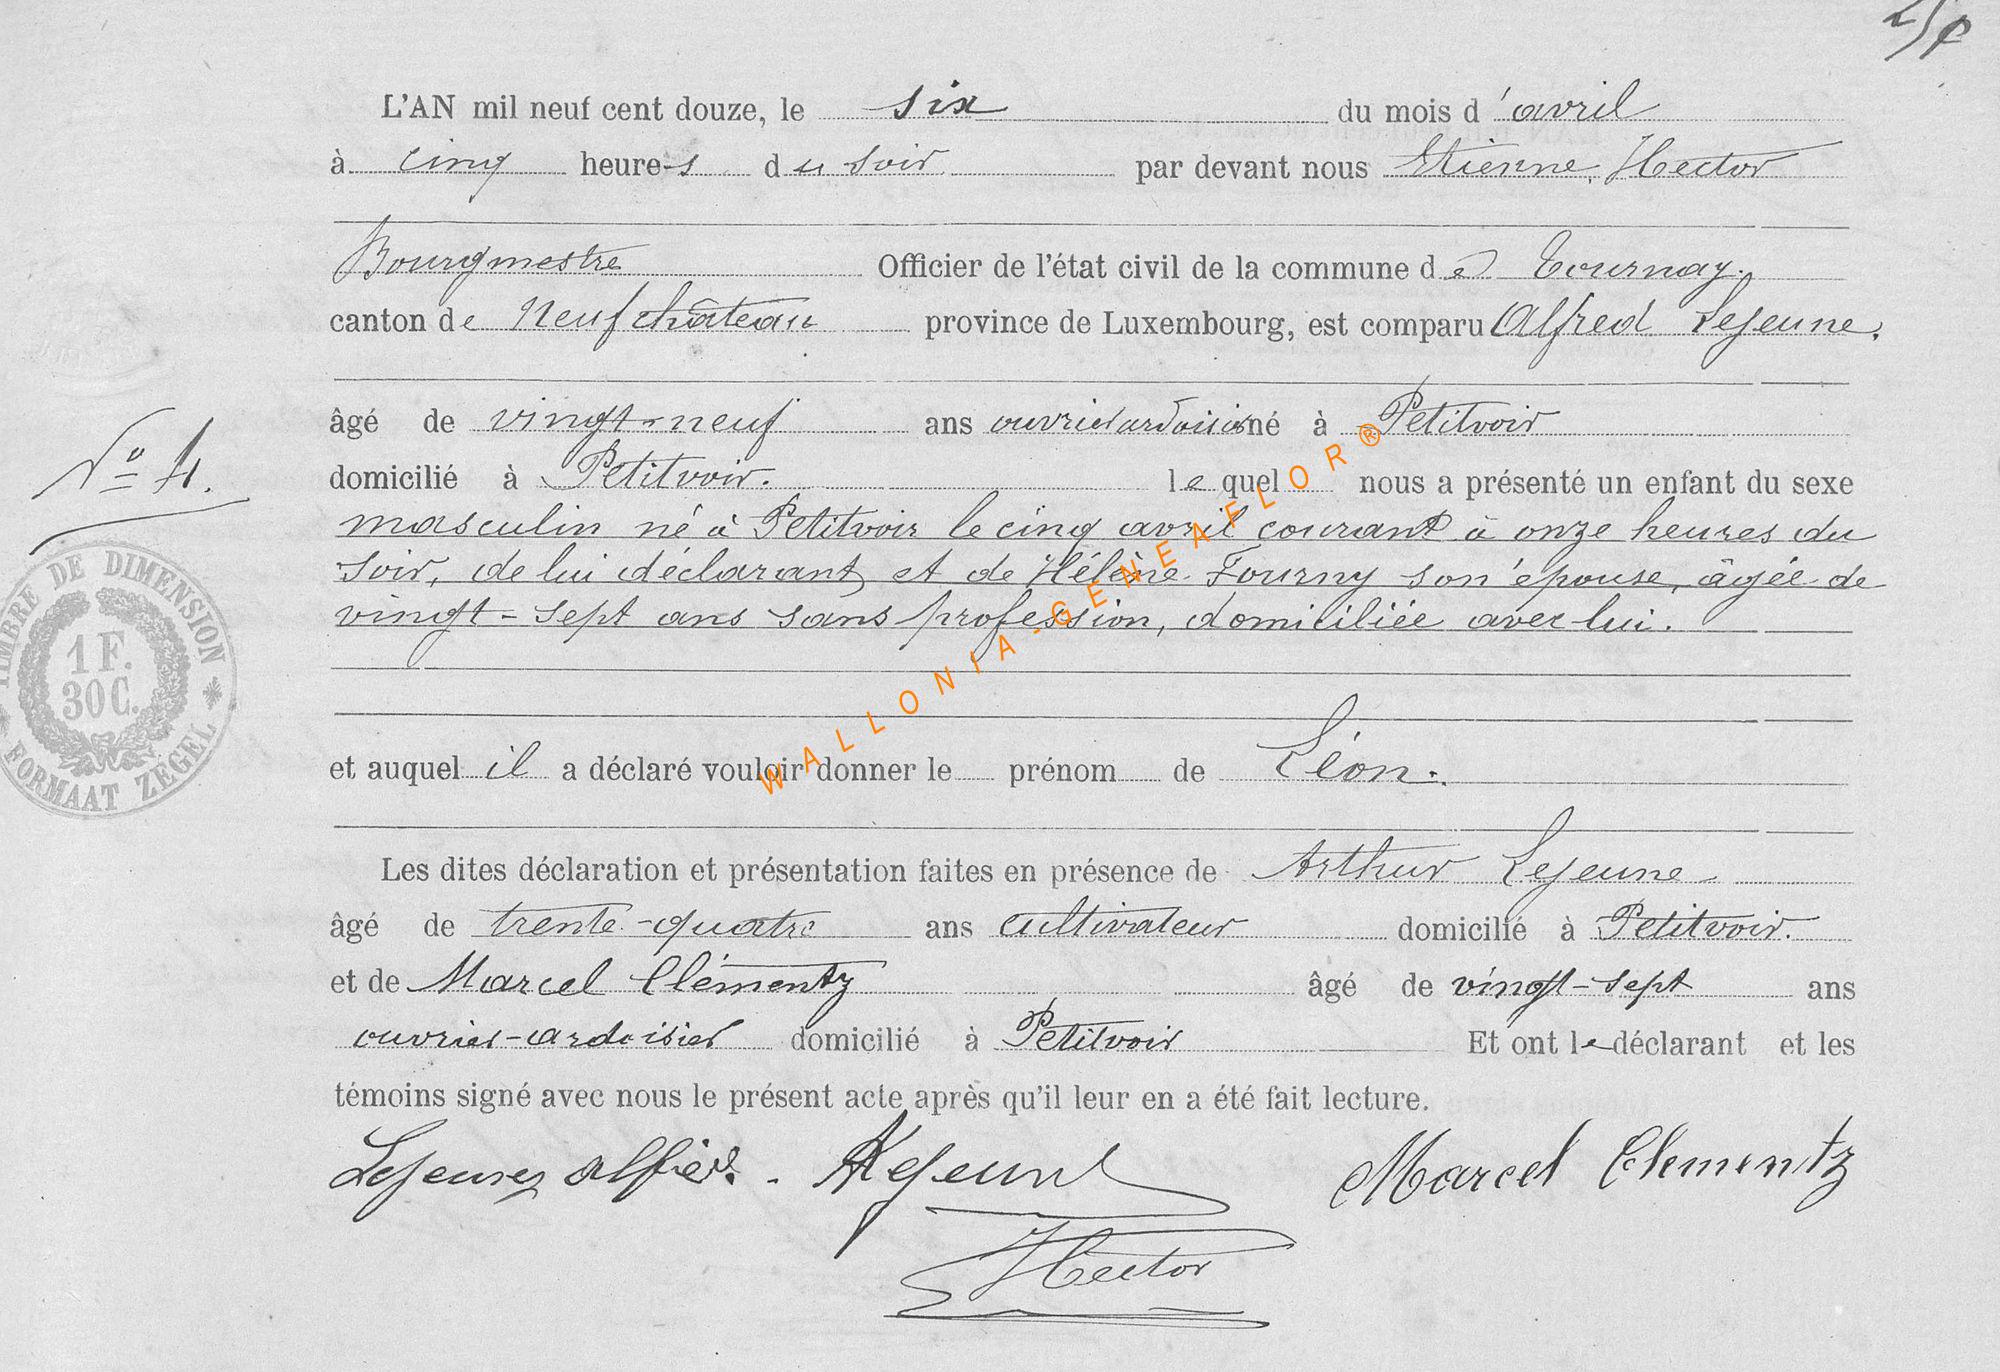 L'AN mil neuf cent douze, le six du mois d'avril
à cinq heures du soir par devant nous Etienne, Hector
Bourgmestre Officier de l'état civil de la commune de Tournay.
canton de Neufchâteau province de Luxembourg, est comparu Alfred Lejeune.
âgé de vingt-neuf ans ouvrier ardoisier né à Petitvoir
N° 4.
domicilié à Petitvoir. lequel nous a présenté un enfant du sexe
masculin né à Petitvoir le cinq avril courant à onze heures du
soir, de lui déclarant et de Hélène Fourny son épouse, âgée de
vingt-sept ans sans profession, domiciliée avec lui.
TIMBRE DE DIMENSION
1 F.
30 C.
FORMAAT ZEGEL
WALLONIA-GENEAFLOR®
et auquel il a déclaré vouloir donner le prénom de Léon.
Les dites déclaration et présentation faites en présence de Arthur Lejeune
âgé de trente-quatre ans cultivateur domicilié à Petitvoir.
et de Marcel Clémentz âgé de vingt-sept ans
ouvrier-ardoisier domicilié à Petitvoir Et ont le déclarant et les
témoins signé avec nous le présent acte après qu'il leur en a été fait lecture.
Lejeune Alfred. A Lejeune Marcel Clementz
Hector